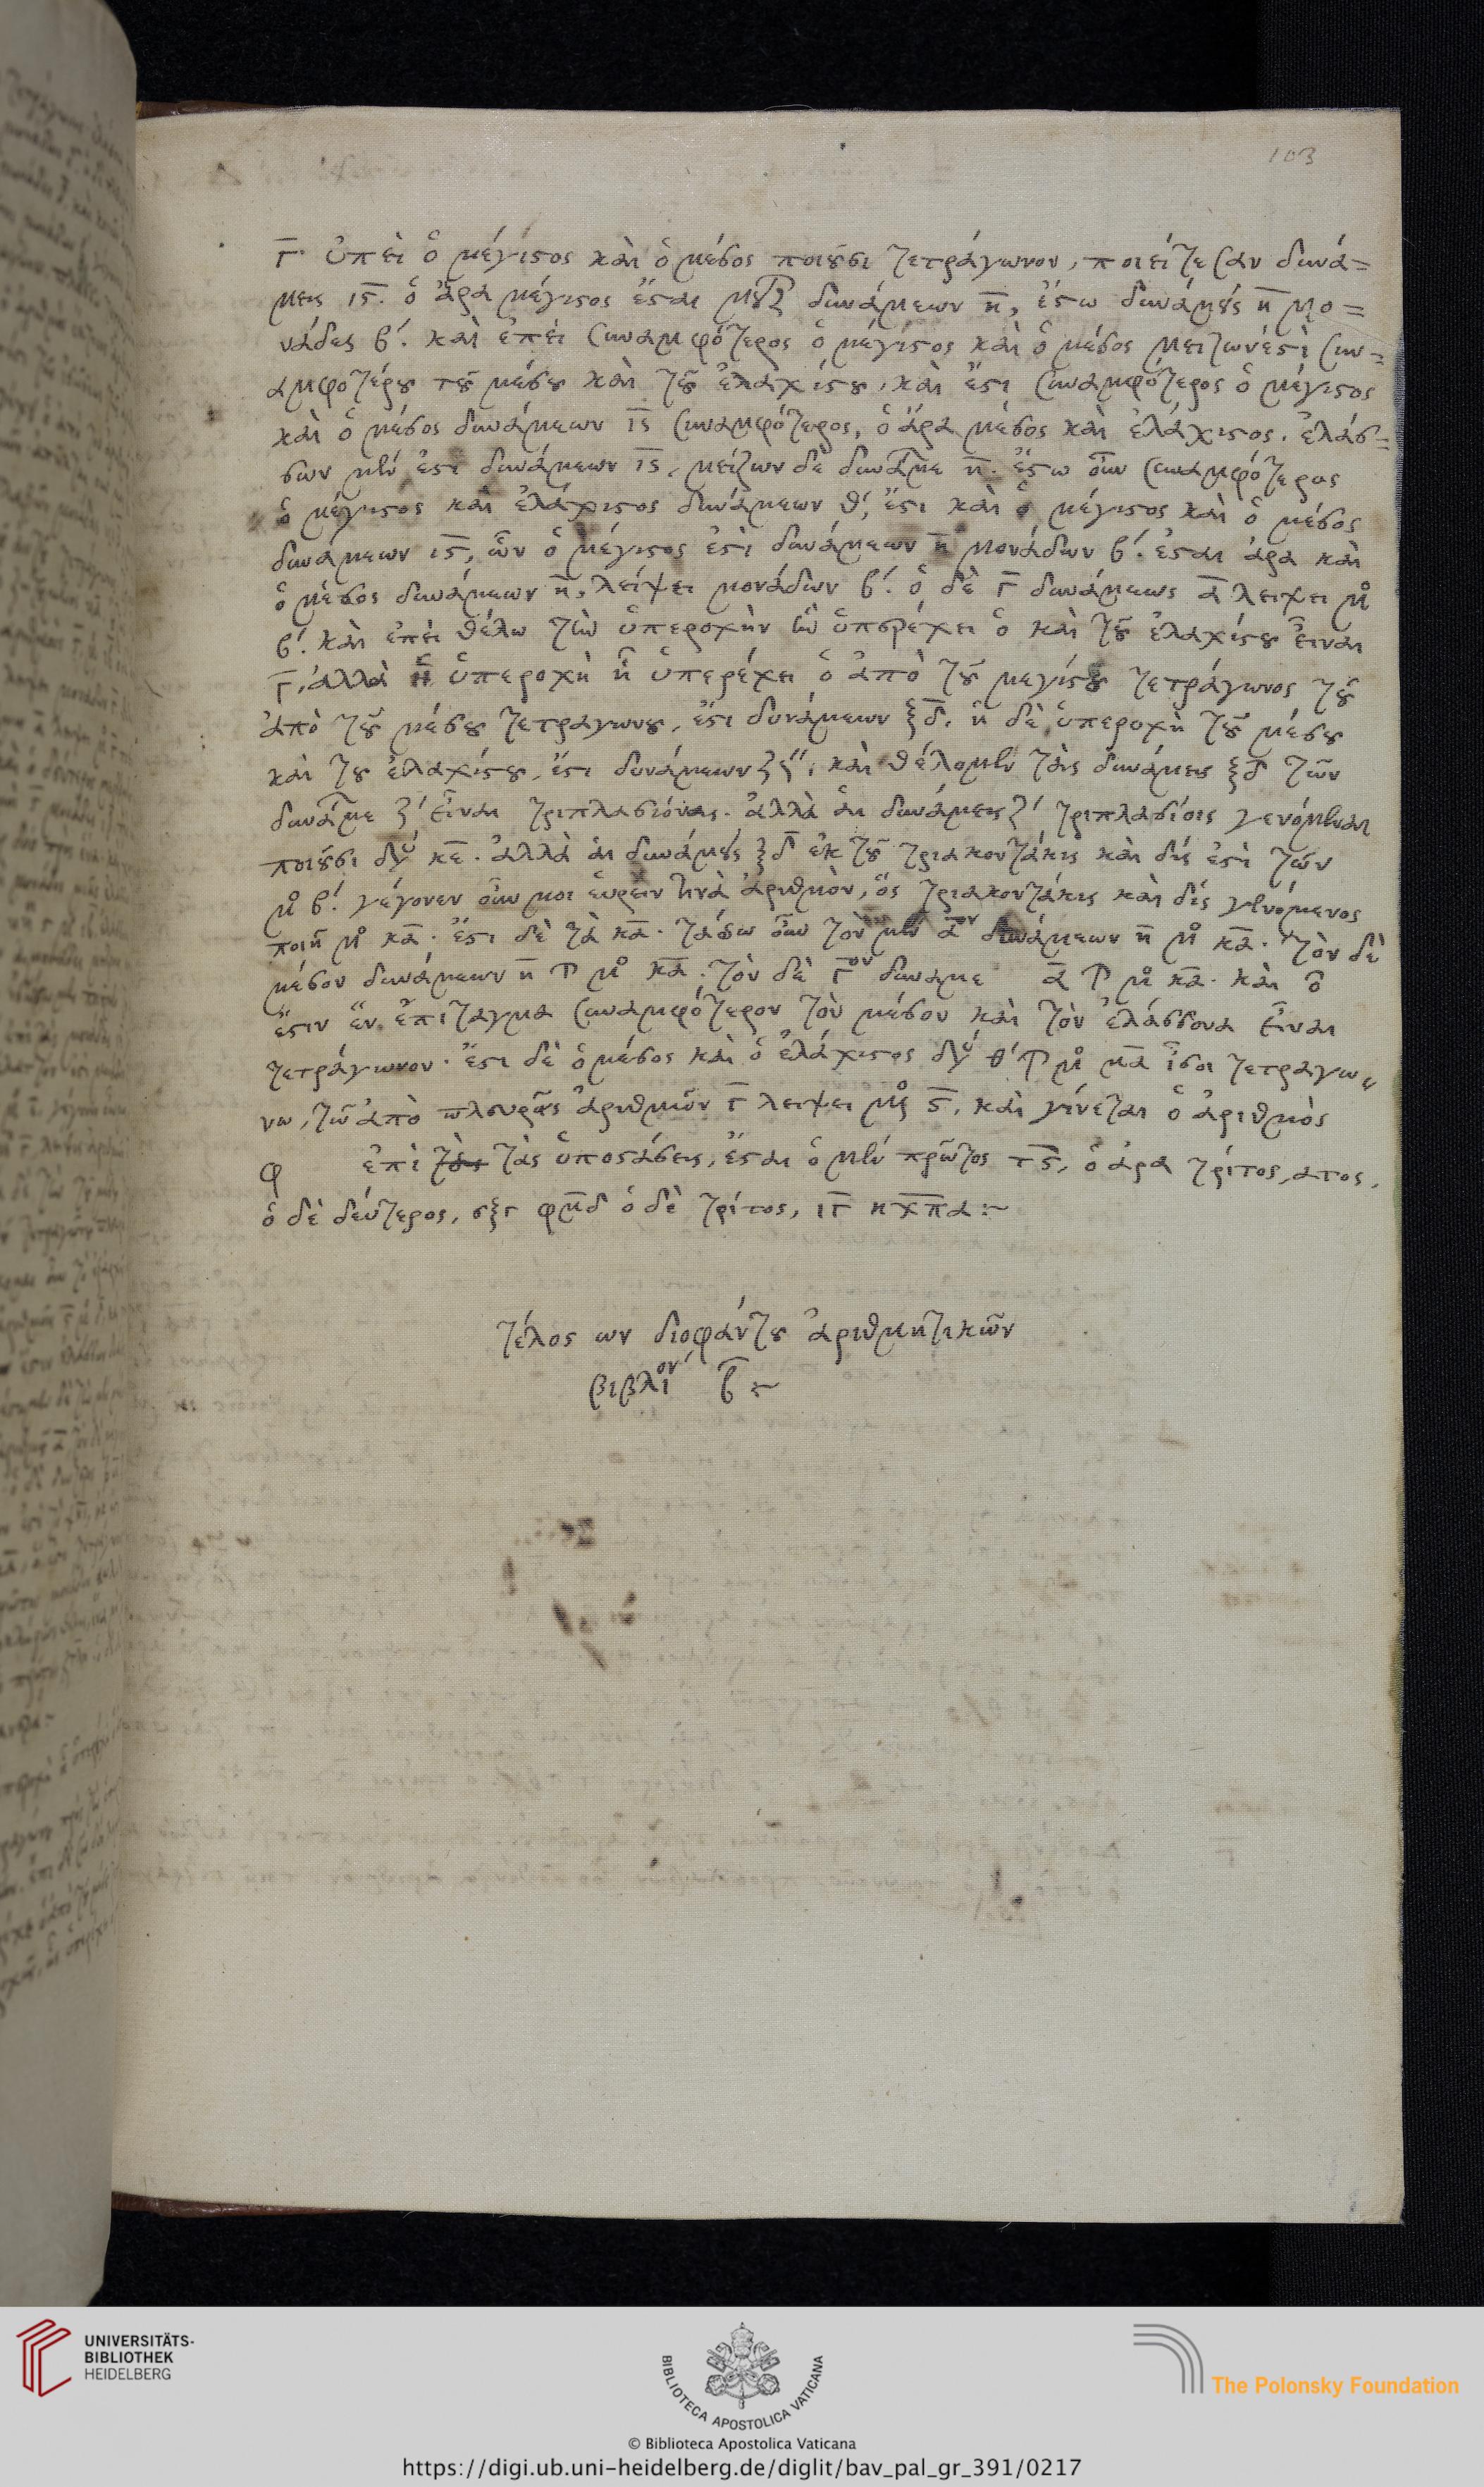 103
γ̅· ἐπεὶ ὁ μέγιστος καὶ ὁ μέσος ποιοῦσι τετράγωνον, ποιείτωσαν δυνά=
μεις ις̅. ὁ ἄρα μέγιστος ἔσται δυνάμεων η̅, ἔστω δυνάμεις η̅ μο=
νάδες β΄. καὶ ἐπεὶ συναμφότερος ὁ μέγιστος καὶ ὁ μέσος μείζων ἐστὶ συν=
αμφοτέρου τοῦ μέσου καὶ τοῦ ἐλαχίστου, καὶ ἔστι συναμφότερος ὁ μέγιστος
καὶ ὁ μέσος δυνάμεων ις̅ συναμφότερος, ὁ ἄρα μέσος καὶ ἐλάχιστος. ἐλάσ=
σων μέν ἐστι δυνάμεων ις̅, μείζων δὲ δυνάμε η̅. ἔστω οὖν συναμφότερος
ὁ μέγιστος καὶ ἐλάχιστος δυνάμεων θ΄, ἔστι καὶ ὁ μέγιστος καὶ ὁ μέσος
δυνάμεων ις̅, ὧν ὁ μέγιστος ἐστὶ δυνάμεων η̅ μονάδων β΄. ἔσται ἄρα καὶ
ὁ μέσος δυνάμεων η̅, λείψει μονάδων β΄. ὁ δὲ γ̅ δυνάμεως α̅ λείψει μ̊
β΄. καὶ ἐπεὶ θέλω τὴν ὑπεροχὴν ἣν ὑπερέχει ὁ καὶ τοῦ ἐλαχίστου εἶναι
γ̅, ἀλλὰ ἡ ὑπεροχὴ ᾗ ὑπερέχει ὁ ἀπὸ τοῦ μεγίστου τετράγωνος τοῦ
ἀπὸ τοῦ μέσου τετραγώνου, ἔστι δυνάμεων ξδ̅, ἡ δὲ ὑπεροχὴ τοῦ μέσου
καὶ τοῦ ἐλαχίστου, ἔστι δυνάμεων ζ΄, καὶ θέλομεν τὰς δυνάμεις ξδ̅ τῶν
δυνάμε ζ΄ εἶναι τριπλασιόνας. ἀλλὰ αἱ δυνάμεις ζ΄ τριπλασίοις γενόμεναι
ποιοῦσι δυ κε̅. ἀλλὰ αἱ δυνάμεις ξδ̅ ἐκ τοῦ τριακοντάκις καὶ δίς ἐστὶ τῶν
μ̊ β΄. γέγονεν οὖν μοι εὑρεῖν τινὰ ἀριθμὸν, ὃς τριακοντάκις καὶ δίς γενόμενος
ποιῇ μ̊ κα̅. ἔστι δὲ τὰ κα̅. τάσσω οὖν τὸν μὲν α̅ον δυνάμεων η̅ μ̊ κα̅. τὸν δὲ
μέσον δυνάμεων η̅ ⋔ μ̊ κα̅. τὸν δὲ γ̅ον δυναμε α̅ ⋔ μ̊ κα̅. καὶ ὅ
ἔστιν ἓν ἐπίταγμα συναμφότερον τὸν μέσον καὶ τὸν ἐλάσσονα εἶναι
τετράγωνον. ἔστι δὲ ὁ μέσος καὶ ὁ ἐλάχιστος δυ θ΄ ⋔ μ̊ μα̅ ἴσοι τετραγω=
νω, τῷ ἀπὸ πλευρᾶς ἀριθμῶν γ̅ λείψει μ̊ ς̅, καὶ γίνεται ὁ ἀριθμὸς
φ ἐπὶ τὰς ὑποστάσεις, ἔσται ὁ μὲν πρῶτος τς̅, ὁ ἄρα τρίτος, ατος,
ὁ δὲ δεύτερος, σξγ φμ̅δ ὁ δὲ τρίτος, ιγ̅ κχ̅π̅α :~
τέλος ων διοφάντου ἀριθμητικῶν
βιβλίον β̅ :~
UNIVERSITÄTS-
BIBLIOTHEK
HEIDELBERG
BIBLIOTECA APOSTOLICA VATICANA
The Polonsky Foundation
© Biblioteca Apostolica Vaticana
https://digi.ub.uni-heidelberg.de/diglit/bav_pal_gr_391/0217